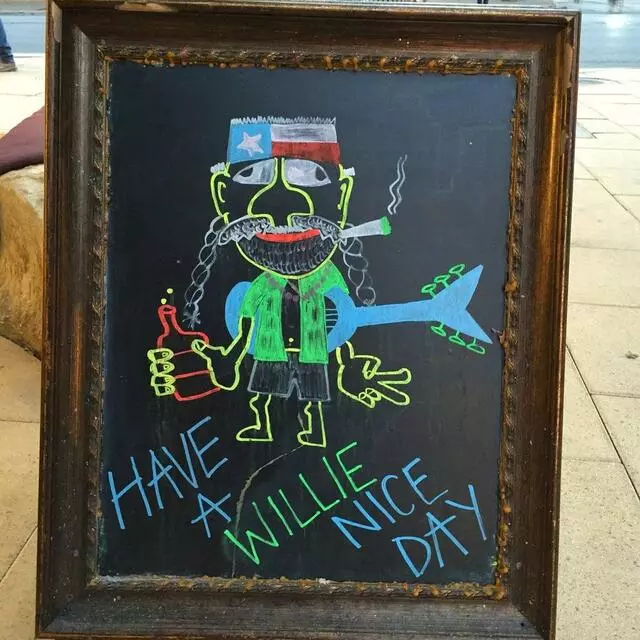 HAVE
A
WILLIE
NICE
DAY